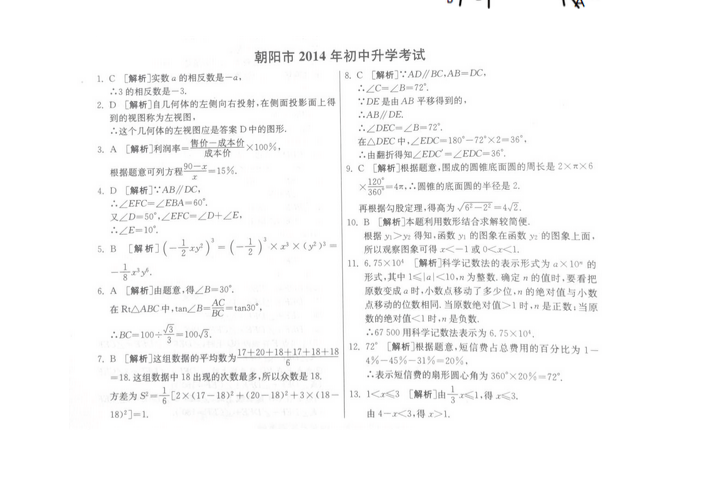 朝阳市 2014 年初中升学考试
1. C [解析]实数 a 的相反数是-a,
∴3 的相反数是-3.
2. D [解析]自几何体的左侧向右投射,在侧面投影面上得
到的视图称为左视图,
∴这个几何体的左视图应是答案 D 中的图形.
3. A [解析]利润率=售价-成本价/成本价×100%,
根据题意可列方程90-x/x=15%.
4. D [解析]∵AB∥DC,
∴∠EFC=∠EBA=60°.
又∠D=50°,∠EFC=∠D+∠E,
∴∠E=10°.
5. B [解析](-1/2xy²)³=(-1/2)³×x³×(y²)³=
-1/8x³y⁶.
6. A [解析]由题意,得∠B=30°.
在 Rt△ABC 中,tan∠B=AC/BC=tan30°,
∴BC=100÷√3/3=100√3.
7. B [解析]这组数据的平均数为17+20+18+17+18+18/6
=18.这组数据中 18 出现的次数最多,所以众数是 18.
方差为 S²=1/6[2×(17-18)²+(20-18)²+3×(18-
18)²]=1.
8. C [解析]∵AD∥BC,AB=DC,
∴∠C=∠B=72°.
∵DE 是由 AB 平移得到的,
∴AB∥DE.
∴∠DEC=∠B=72°.
在△DEC 中,∠EDC=180°-72°×2=36°,
∴由翻折得知∠EDC′=∠EDC=36°.
9. C [解析]根据题意,围成的圆锥底面圆的周长是 2×π×6
×120°/360°=4π,∴圆锥的底面圆的半径是 2.
再根据勾股定理,得高为√6²-2²=4√2.
10. B [解析]本题利用数形结合求解较简便.
根据 y₁>y₂ 得知,函数 y₁ 的图象在函数 y₂ 的图象上面,
所以观察图象可得 x<-1 或 0<x<1.
11. 6.75×10⁴ [解析]科学记数法的表示形式为 a×10ⁿ 的
形式,其中 1≤|a|<10,n 为整数.确定 n 的值时,要看把
原数变成 a 时,小数点移动了多少位,n 的绝对值与小数
点移动的位数相同.当原数绝对值>1 时,n 是正数;当原
数的绝对值<1 时,n 是负数.
∴67 500 用科学记数法表示为 6.75×10⁴.
12. 72° [解析]根据题意,短信费占总费用的百分比为 1-
4%-45%-31%=20%,
∴表示短信费的扇形圆心角为 360°×20%=72°.
13. 1<x≤3 [解析]由1/3x≤1,得 x≤3.
由 4-x<3,得 x>1.